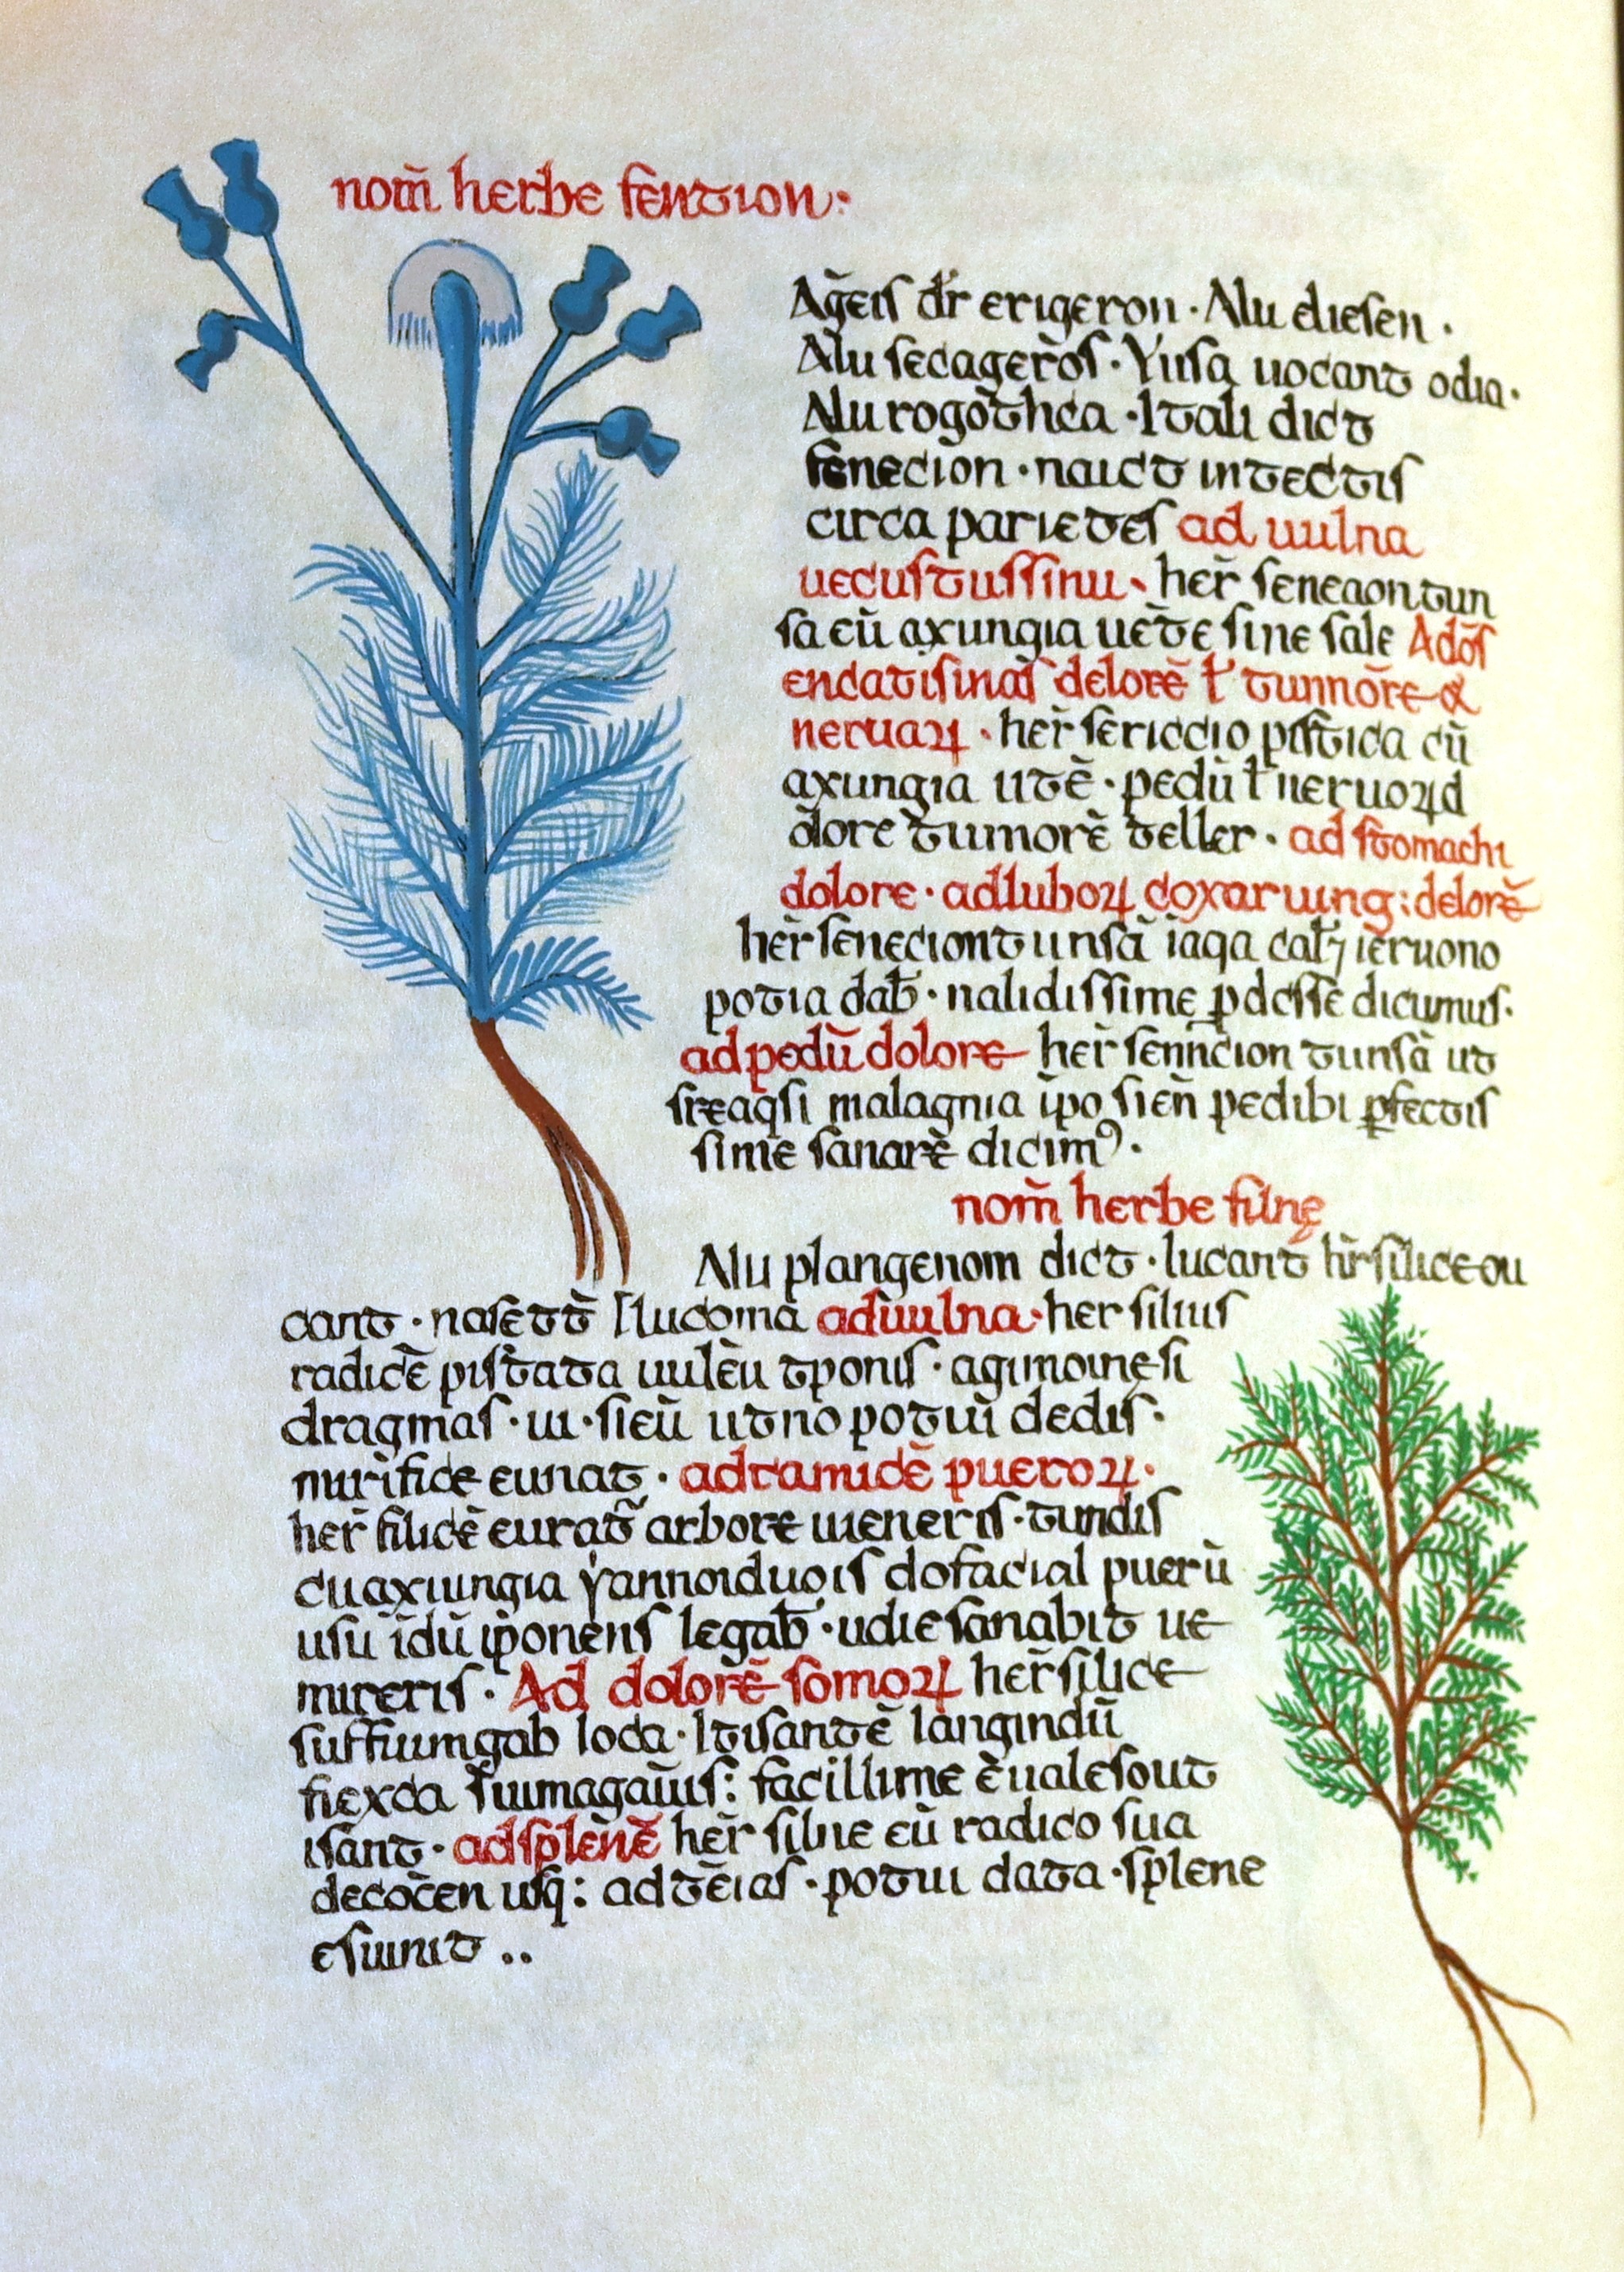 nom̄ herbe sention·
Aḡeis dr̄ erigeron · Alii diesen ·
Alii secager̄os · Yusa uocant odia·
Alii rogōthca · Itali dict
senecion · naict in tectis
circa parietes ad uulna
uecustussinu · her̄ seneaon tun
sa cū axungia uēte sine sale Ad os
encatisinas delorē ł tunnōre &
neruaꝝ · her̄ sericcio pistica cū
axungia utē · pedū ł neruoꝝ d
dore tumorē teller · ad stomachi
dolore · ad luboꝝ coxar uing: delorē
her̄ senecion tunsā iaqa cal ieruono
potia dab̄ · nalidissime ꝑdesse dicumus·
ad pedū dolore her̄ senncion tunsā ut
sreaqsi malagnia īpo sien̄ pedibi ꝑfectis
sime sanarē dicimꝰ·
nom̄ herbe filnę
Alii plangenom dict · lucant hr̄ silice ou
cant · nasētt̄ lucomā ad uulna · her silius
radicē pistata uulēu tponis · agimoinę si
dragmas · iii · sicū utno potui dedis·
mirifice eunat · ad ramicē pueroꝝ·
her̄ filicē eurat̄ arbore ueneris · tundis
cu axiungia Yannoiduois dofacial puerū
usu īdū īponens legab̄ · udie sanabit ue
mireris · Ad dolorē somoꝝ her̄ silice
suffuimgab loca · Itisantē langindū
fiexca suimagauis: facillime ēualesout
isant · ad splenē her̄ silne cū radico sua
decocēn usq: ad tēias · potui data · splene
esuinit ··